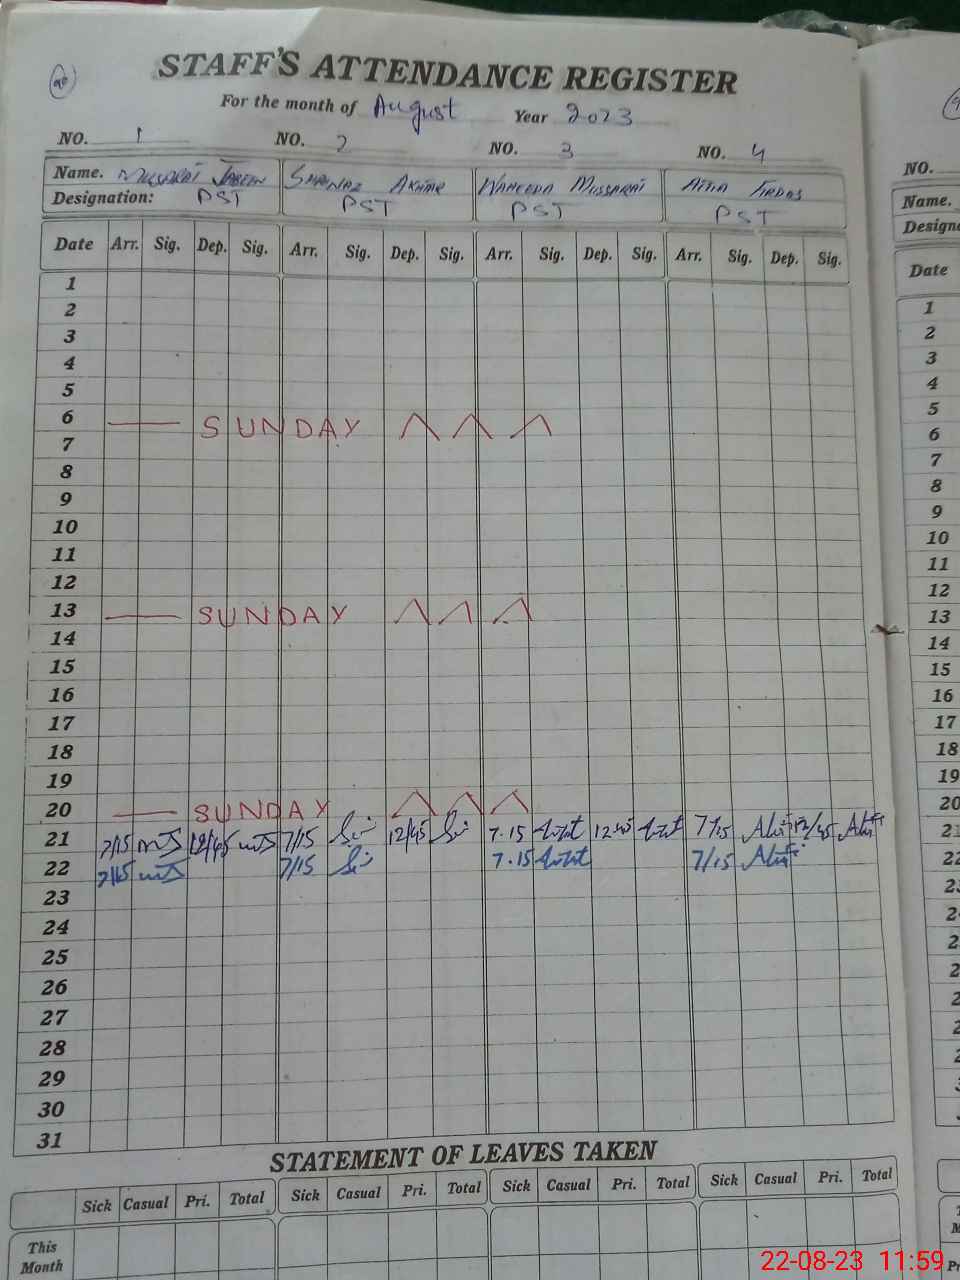 20
STAFF'S ATTENDANCE REGISTER
For the month of August Year 2023
NO. 1 NO. 2 NO. 3 NO. 4 NO.
Name. Mussarat Jabeen Shanaz Akhtar Waheeda Mussarat Atia Firdos Name.
Designation: PST PST PST PST
Date Arr. Sig. Dep. Sig. Arr. Sig. Dep. Sig. Arr. Sig. Dep. Sig. Arr. Sig. Dep. Sig. Date
1 1
2 2
3 3
4 4
5 5
6 — SUNDAY 6
7 7
8 8
9 9
10 10
11 11
12 12
13 — SUNDAY 13
14 14
15 15
16 16
17 17
18 18
19 19
20 — SUNDAY 20
21 7/15 12/45 7/15 12/45 7.15 12.45 7/15 12/45
22 7/15 7/15 7.15 7/15
23
24
25
26
27
28
29
30
31
STATEMENT OF LEAVES TAKEN
Sick Casual Pri. Total Sick Casual Pri. Total Sick Casual Pri. Total Sick Casual Pri. Total
This
Month
22-08-23 11:59